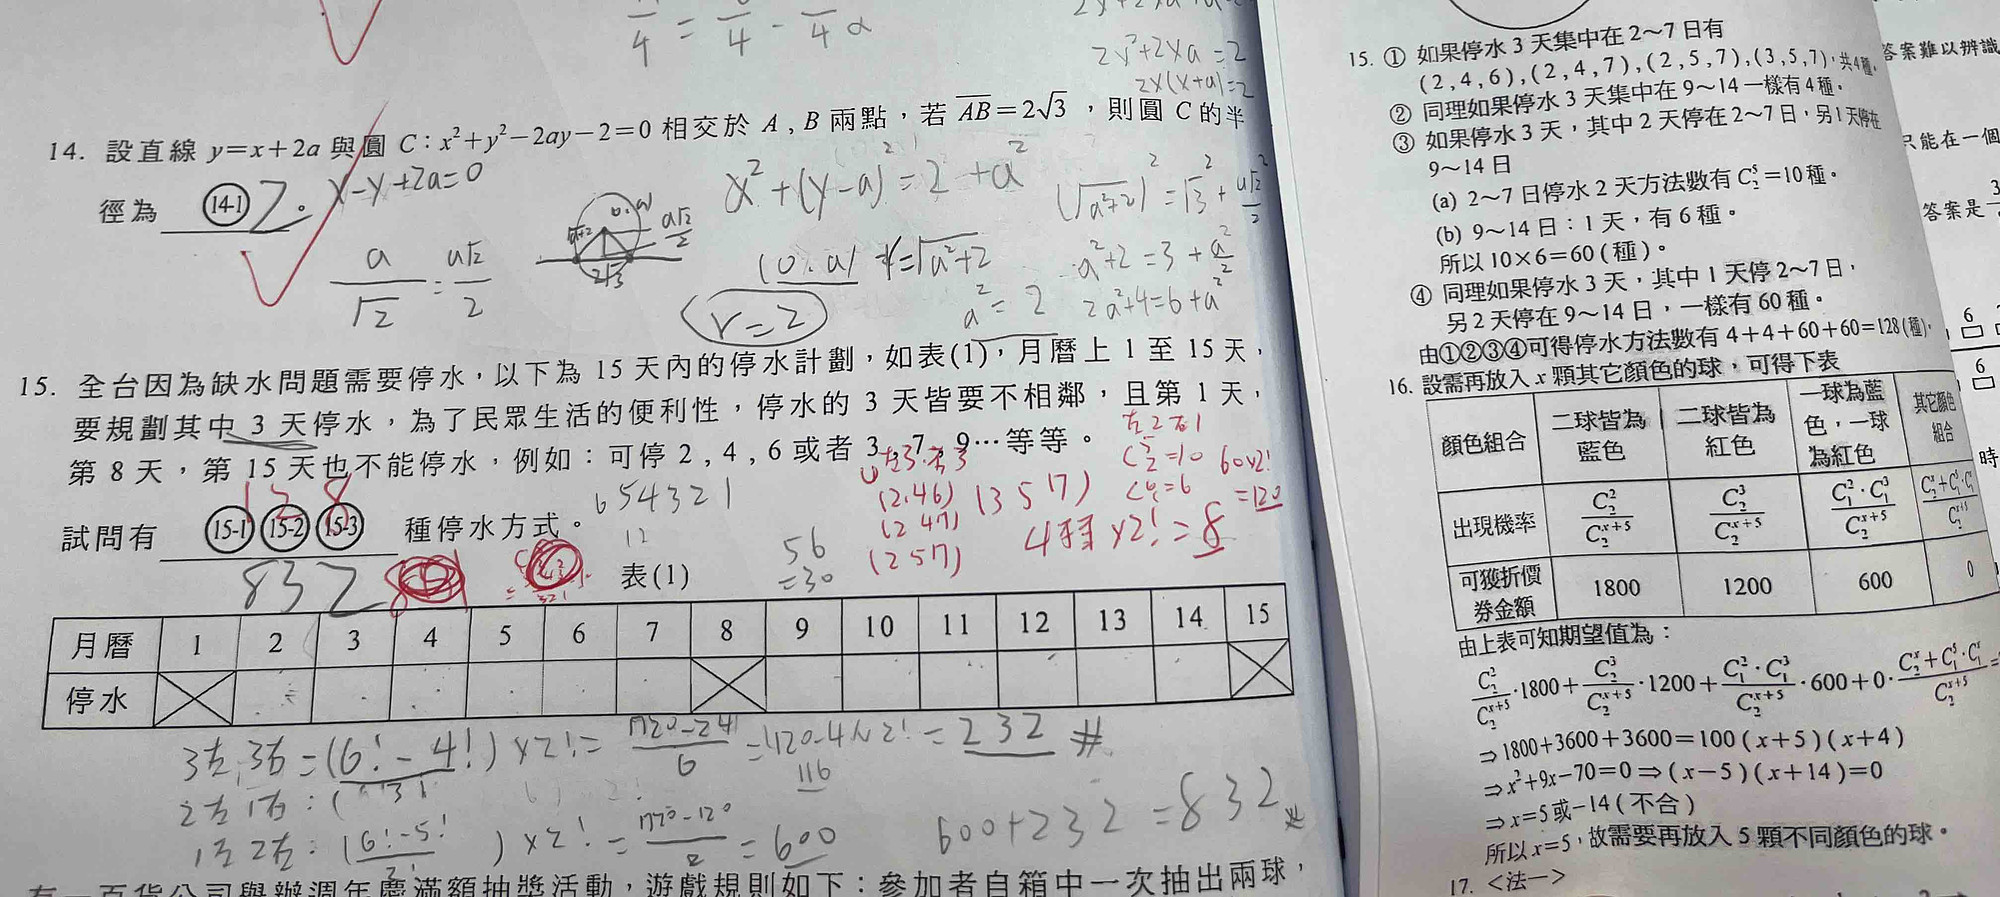 2x²+2xa=2
2x(x+a)=2
14. 設直線 y=x+2a 與圓 C：x²+y²−2ay−2=0 相交於 A , B 兩點，若 AB=2√3 ，則圓 C 的半
徑為 14-1 2 。
x−y+2a=0
x²+(y−a)²=2+a²
(√a²+2)²=√3²+(a√2/2)²
a/√2 = a√2/2
(0,a) r=√a²+2
a²+2=3+a²/2
a²=2 2a²+4=6+a²
r=2
2√3
15. 全台因為缺水問題需要停水，以下為 15 天內的停水計劃，如表(1)，月曆上 1 至 15 天，
要規劃其中 3 天停水，為了民眾生活的便利性，停水的 3 天皆要不相鄰，且第 1 天，
第 8 天，第 15 天也不能停水，例如：可停 2 , 4 , 6 或者 3 , 7 , 9…等等。
試問有 15-1 15-2 15-3 種停水方式。
128
832
654321
12
56
=30
左2右1
C⁵₂=10 60×2!
C⁶₁=6 =120
左3.右3
(2.46) (3 5 7)
(2 47)
(2 5 7)
4種×2!=8
表(1)
月曆 1 2 3 4 5 6 7 8 9 10 11 12 13 14 15
停水
3左,3右=(6!−4!)×2!=720−24/6=(120−4)×2!=232 #
116
2左1右:(
1左2右:(6!−5!/2!)×2!=720−120/2=600
600+232=832
有一百貨公司舉辦週年慶滿額抽獎活動，遊戲規則如下：參加者自箱中一次抽出兩球，
15. ① 如果停水 3 天集中在 2～7 日有
(2,4,6),(2,4,7),(2,5,7),(3,5,7)，共4種。
② 同理如果停水 3 天集中在 9～14 一樣有 4 種。
③ 如果停水 3 天，其中 2 天停在 2～7 日，另1天停在
9～14 日
(a) 2～7 日停水 2 天方法數有 C⁵₂=10 種。
(b) 9～14 日：1 天，有 6 種。
所以 10×6=60 (種)。
④ 同理如果停水 3 天，其中 1 天停 2～7 日，
另 2 天停在 9～14 日，一樣有 60 種。
由①②③④可得停水方法數有 4+4+60+60=128(種)。
16. 設需再放入 x 顆其它顏色的球，可得下表
顏色組合 二球皆為藍色 二球皆為紅色 一球為藍色，一球為紅色 其它顏色組合
出現機率 C²₂/Cˣ⁺⁵₂ C³₂/Cˣ⁺⁵₂ C²₁·C³₁/Cˣ⁺⁵₂ Cˣ₂+C⁵₁·Cˣ₁/Cˣ⁺⁵₂
可獲折價券金額 1800 1200 600 0
由上表可知期望值為：
C²₂/Cˣ⁺⁵₂·1800+C³₂/Cˣ⁺⁵₂·1200+C²₁·C³₁/Cˣ⁺⁵₂·600+0·Cˣ₂+C⁵₁·Cˣ₁/Cˣ⁺⁵₂=
⇒1800+3600+3600=100(x+5)(x+4)
⇒x²+9x−70=0⇒(x−5)(x+14)=0
⇒x=5或−14(不合)
所以x=5，故需要再放入 5 顆不同顏色的球。
17. <法一>
答案難以辨識
只能在一個
答案是
時